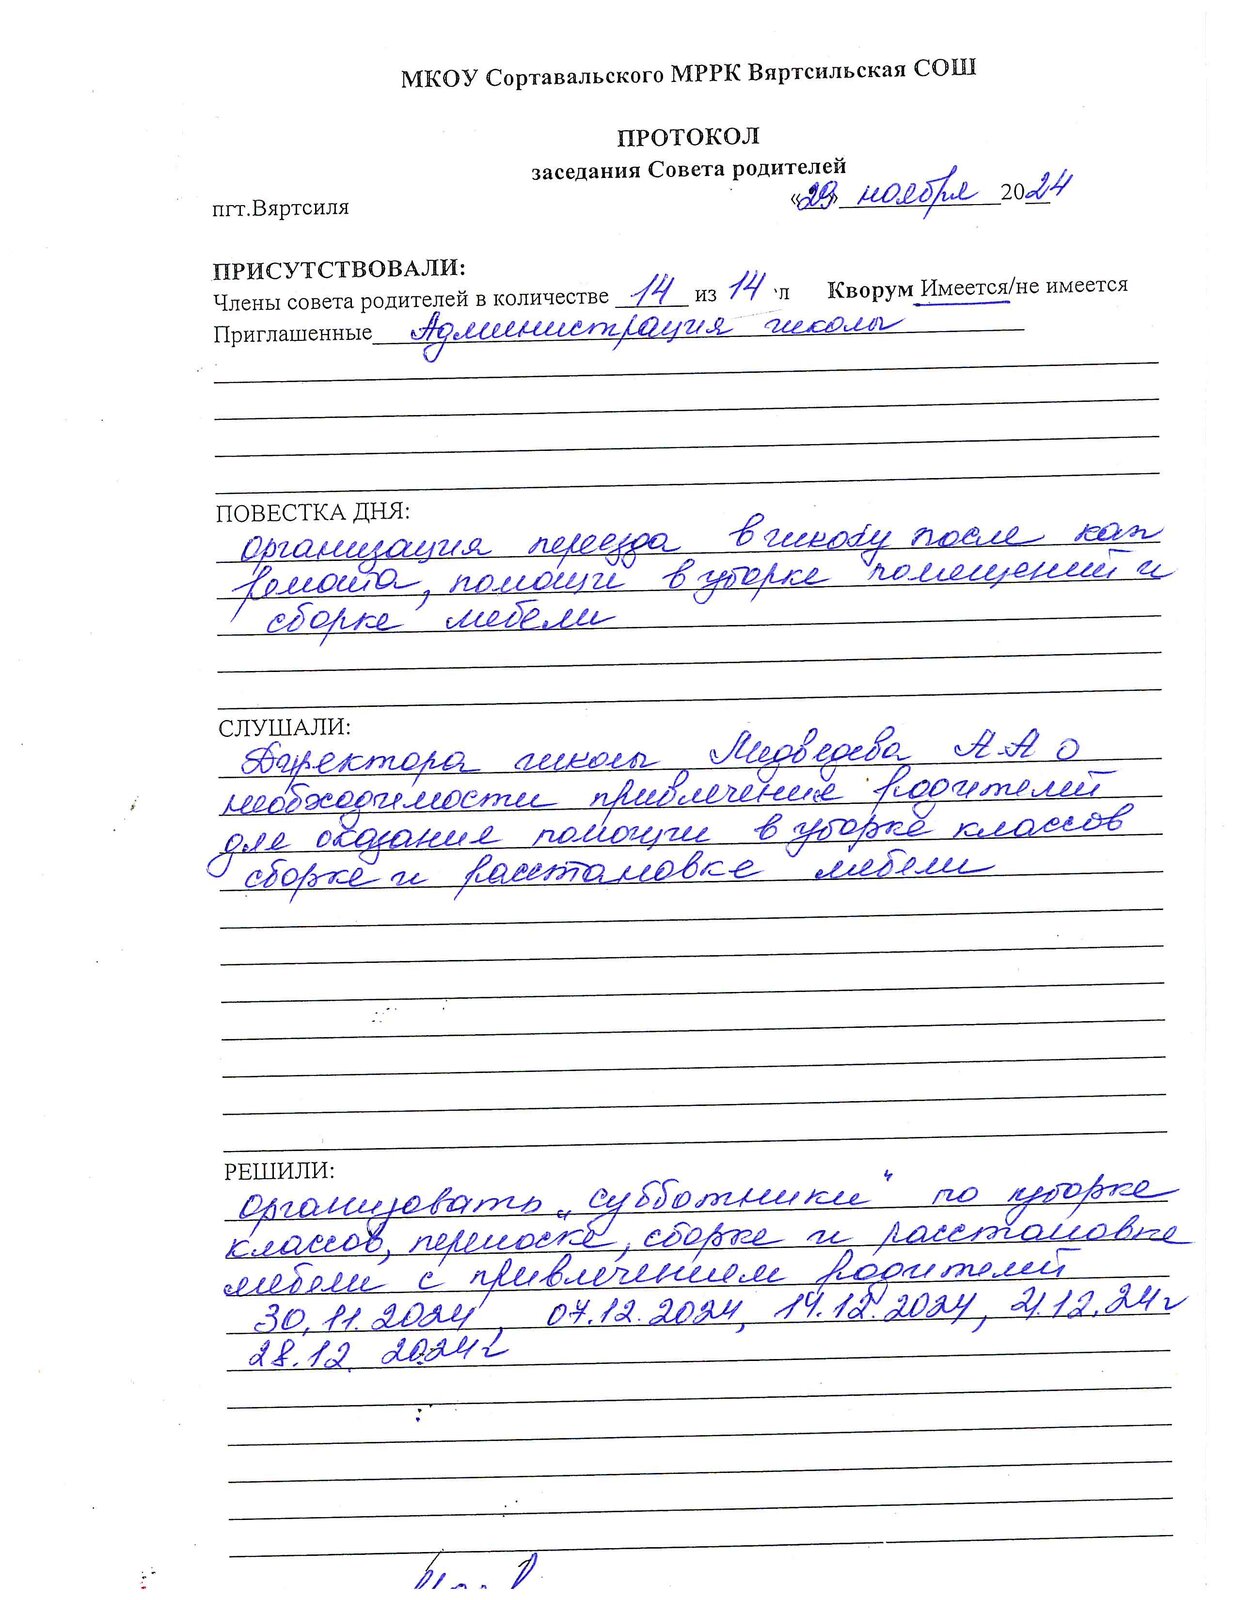 МКОУ Сортавальского МРРК Вяртсильская СОШ
ПРОТОКОЛ
заседания Совета родителей
пгт.Вяртсиля «29» ноября 2024
ПРИСУТСТВОВАЛИ:
Члены совета родителей в количестве 14 из 14 л Кворум Имеется/не имеется
Приглашенные Администрация школы
ПОВЕСТКА ДНЯ:
Организация переезда в школу после кап
ремонта, помощи в уборке помещений и
сборке мебели
СЛУШАЛИ:
Директора школы Медведева А А о
необходимости привлечения родителей
для оказания помощи в уборке классов
сборке и расстановке мебели
РЕШИЛИ:
Организовать „субботники“ по уборке
классов, переноске, сборке и расстановке
мебели с привлечением родителей
30.11.2024, 07.12.2024, 14.12.2024, 21.12.24г
28.12. 2024г